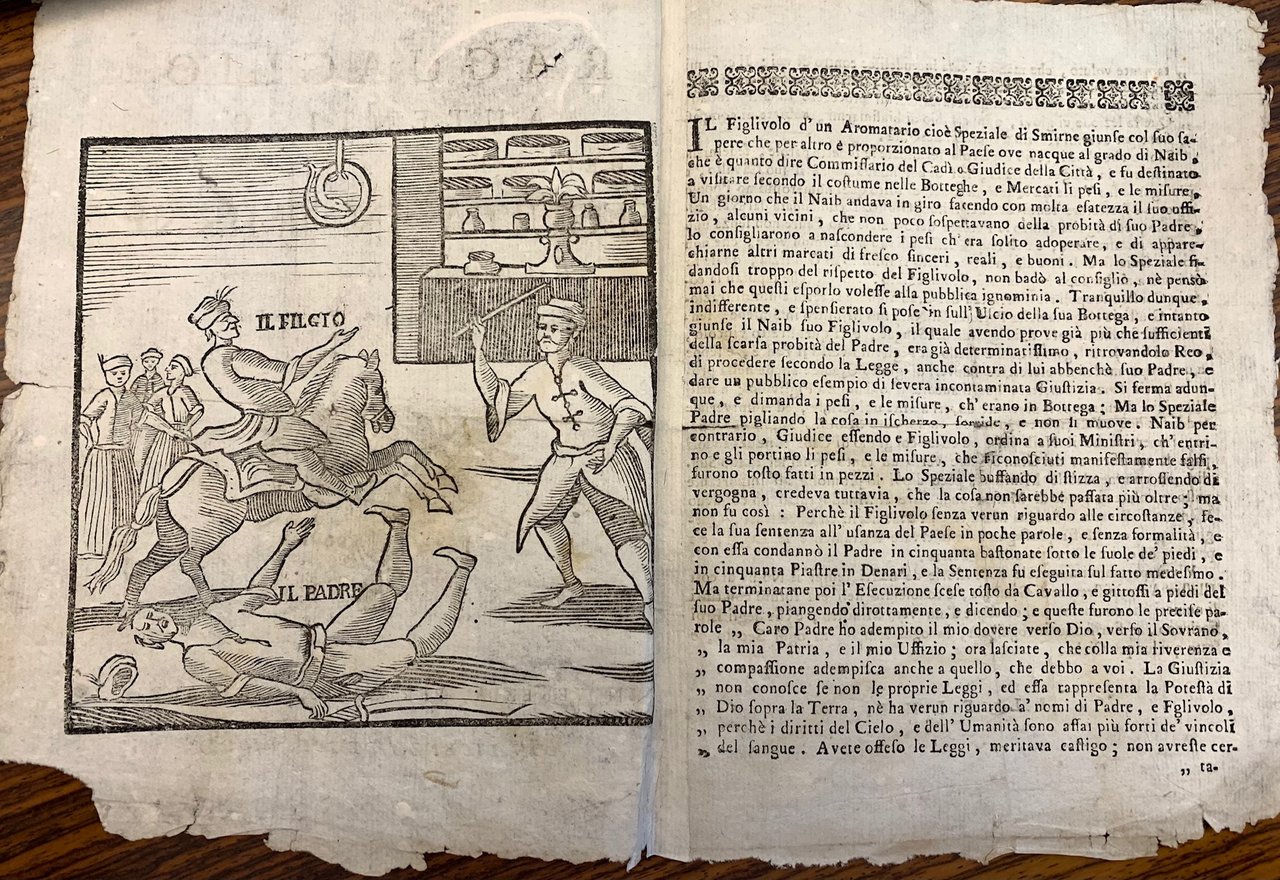 IL FILGIO
IL PADRE
IL Figlivolo d'un Aromatario cioè Speziale di Smirne giunse col suo sa-
pere che per altro è proporzionato al Paese ove nacque al grado di Naib,
che è quanto dire Commissario del Cadì o Giudice della Città, e fu destinato
a visitare secondo il costume nelle Botteghe, e Mercati li pesi, e le misure.
Un giorno che il Naib andava in giro facendo con molta esatezza il suo offi-
zio, alcuni vicini, che non poco sospettavano della probità di suo Padre,
lo consigliarono a nascondere i pesi ch'era solito adoperare, e di appare-
chiarne altri marcati di fresco sinceri, reali, e buoni. Ma lo Speziale fi-
dandosi troppo del rispetto del Figlivolo, non badò al consiglio, nè pensò
mai che questi esporlo volesse alla pubblica ignominia. Tranquillo dunque,
indifferente, e spensierato si pose in sull'Uscio della sua Bottega, e intanto
giunse il Naib suo Figlivolo, il quale avendo prove già più che sufficienti
della scarsa probità del Padre, era già determinatissimo, ritrovandolo Reo,
di procedere secondo la Legge, anche contra di lui abbenchè suo Padre, e
dare un pubblico esempio di severa incontaminata Giustizia. Si ferma adun-
que, e dimanda i pesi, e le misure, ch'erano in Bottega; Ma lo Speziale
Padre pigliando la cosa in ischerzo, sorride, e non si muove. Naib per
contrario, Giudice essendo e Figlivolo, ordina a suoi Ministri, ch'entri-
no e gli portino li pesi, e le misure, che riconosciuti manifestamente falsi,
furono tosto fatti in pezzi. Lo Speziale buffando di stizza, e arrossendo di
vergogna, credeva tuttavia, che la cosa non sarebbe passata più oltre; ma
non fu così: Perchè il Figlivolo senza verun riguardo alle circostanze, fe-
ce la sua sentenza all'usanza del Paese in poche parole, e senza formalità, e
con essa condannò il Padre in cinquanta bastonate sotto le suole de' piedi, e
in cinquanta Piastre in Denari, e la Sentenza fu eseguita sul fatto medesimo.
Ma terminatane poi l'Esecuzione scese tosto da Cavallo, e gittossi a piedi del
suo Padre, piangendo dirottamente, e dicendo; e queste furono le precise pa-
role „ Caro Padre ho adempito il mio dovere verso Dio, verso il Sovrano,
„ la mia Patria, e il mio Uffizio; ora lasciate, che colla mia riverenza e
„ compassione adempisca anche a quello, che debbo a voi. La Giustizia
„ non conosce se non le proprie Leggi, ed essa rappresenta la Potestà di
„ Dio sopra la Terra, nè ha verun riguardo a' nomi di Padre, e Fglivolo,
„ perchè i diritti del Cielo, e dell'Umanità sono assai più forti de' vincoli
„ del sangue. Avete offeso le Leggi, meritava castigo; non avreste cer-
„ ta-